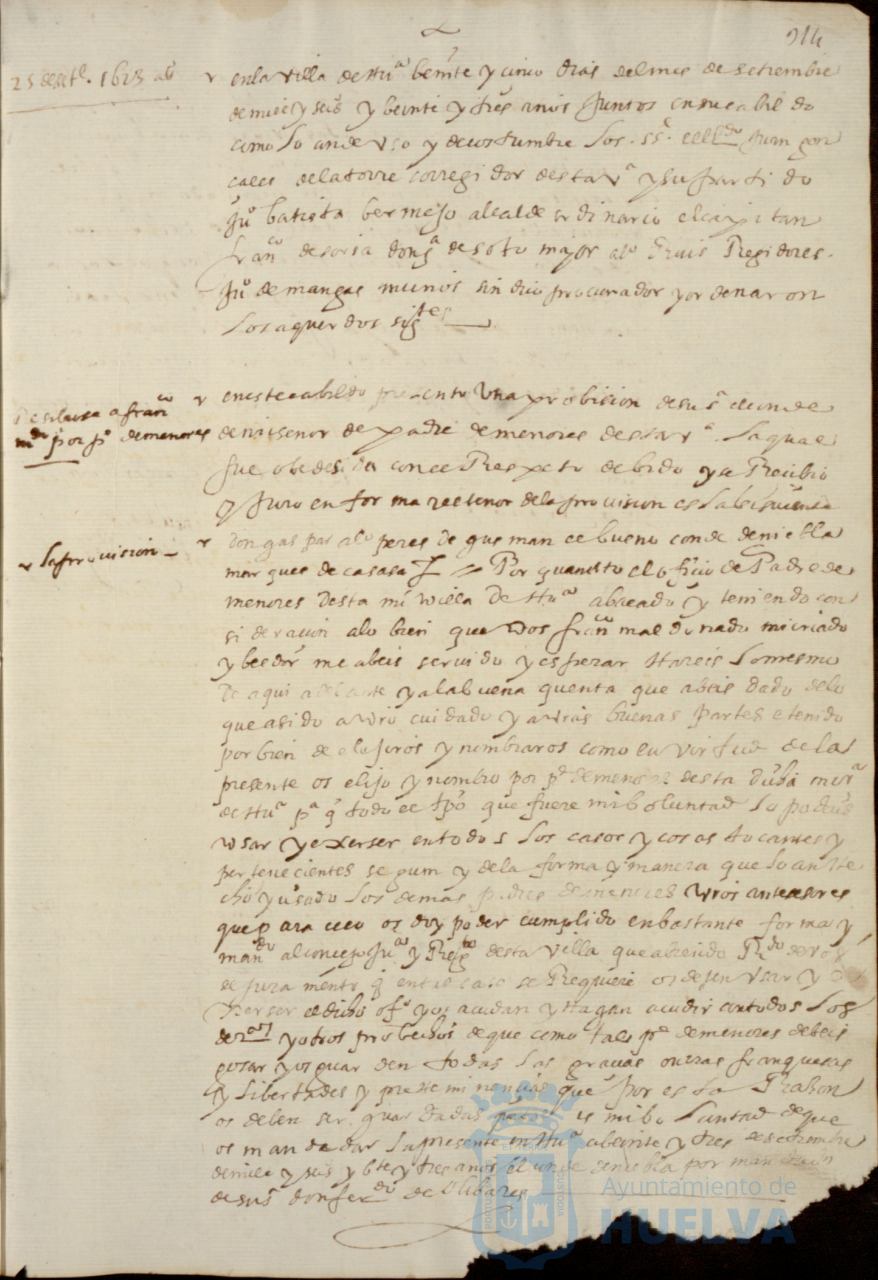 914
25 de setᵉ. 1623 aˢ
en la villa de Huᵃ beinte y cinco dias del mes de setiembre
de mill y seisº y beinte y tres años Juntos en su cabildo
como lo an de uso y de costumbre los ssᵉˢ el lldº Juan gon
çales de la torre corregidor desta vᵃ y su partido
Juº batista bermejo alcalde ordinario el capitan
franᶜº de soria don gᵃ de soto mayor alº Regidores
Juº de mangas munis sindico procurador y ordenaron
los aquerdos sigᵗᵉˢ
a franᶜº
mdº por pᵉ de menores
en este cabildo presento una probision de su sᵃ el conde
de mi señor de padre de menores desta vᵃ la qual
fue obedesida con el Respeto debido y se Recibio
y Juro en forma y el tenor de la provision es la siguiente
la provision
don gaspar alº peres de gusman el bueno conde de niebla
marques de casasa Por quanto el oficio de Padre de
menores desta mi villa de Huᵃ a bacado y teniendo con
sideracion a lo bien que vos franᶜº maldonado mi criado
y beedor me abeis servido y espero hareis lo mesmo
de aqui adelante y a la buena quenta que abeis dado de lo
que a sido a vrº cuidado y a vras buenas partes e tenido
por bien de elejiros y nombraros como en virtud de la
presente os elijo y nombro por pᵉ de menores desta dicha mi vᵃ
de Huᵃ pᵃ q todo el tpº que fuere mi boluntad lo podais
usar y exerser en todos los casos y cosas tocantes y
pertenecientes segun y de la forma y manera que lo an he
cho y usado los demas padres de menores vros antesesores
que para ello os doy poder cumplido en bastante forma y
mandº al concejo Jusᵃ y Regᵗº desta villa que abiendo Rdº de vos
el juramento q en tal caso se Requiere os dejen usar y e
xerser el dicho ofº y os acudan y hagan acudir con todos los
derºˢ y otros probechos de que como tal pᵉ de menores debeis
gosar y os guarden todas las gracias onrras franquesas
y libertades y preheminencias que por esta Rason
os deben ser guardadas es mi boluntad de que
os mande dar la presente en Huᵃ a beinte y tres de setiembre
de mill y seisº y bᵗᵉ y tres años el conde de niebla por mandado
de su sᵃ don ferdº de olibares
Ayuntamiento de
HUELVA